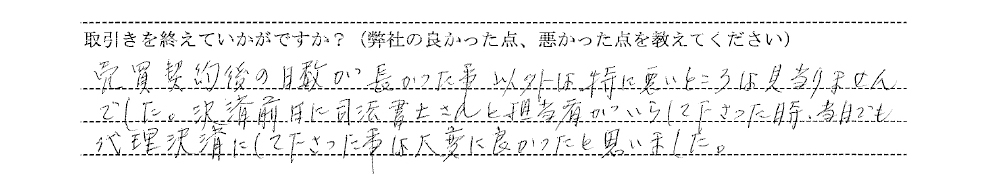 取引きを終えていかがですか？（弊社の良かった点、悪かった点を教えてください）
売買契約後の日数が長かった事以外は特に悪いところは見当りません
でした。決済前日に司法書士さんと担当者がいらして下さった時、当日でも
代理決済にして下さった事は大変に良かったと思いました。